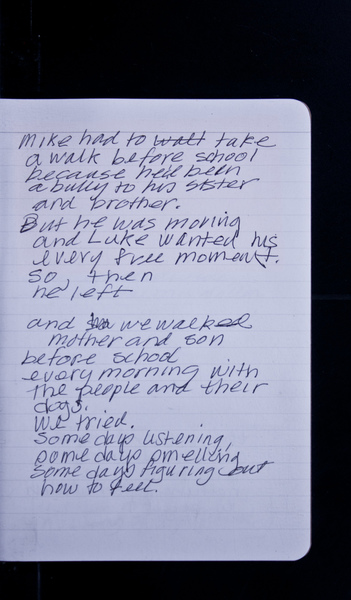 Mike had to wait take
a walk before school
because he'd been
a bully to his sister
and brother.
But he was moving
and Luke wanted his
every free moment.
So, then
he left
and we walked
mother and son
before school
every morning with
the people and their
dogs.
We tried.
Some days listening,
some days smelling
some days figuring out
how to feel.